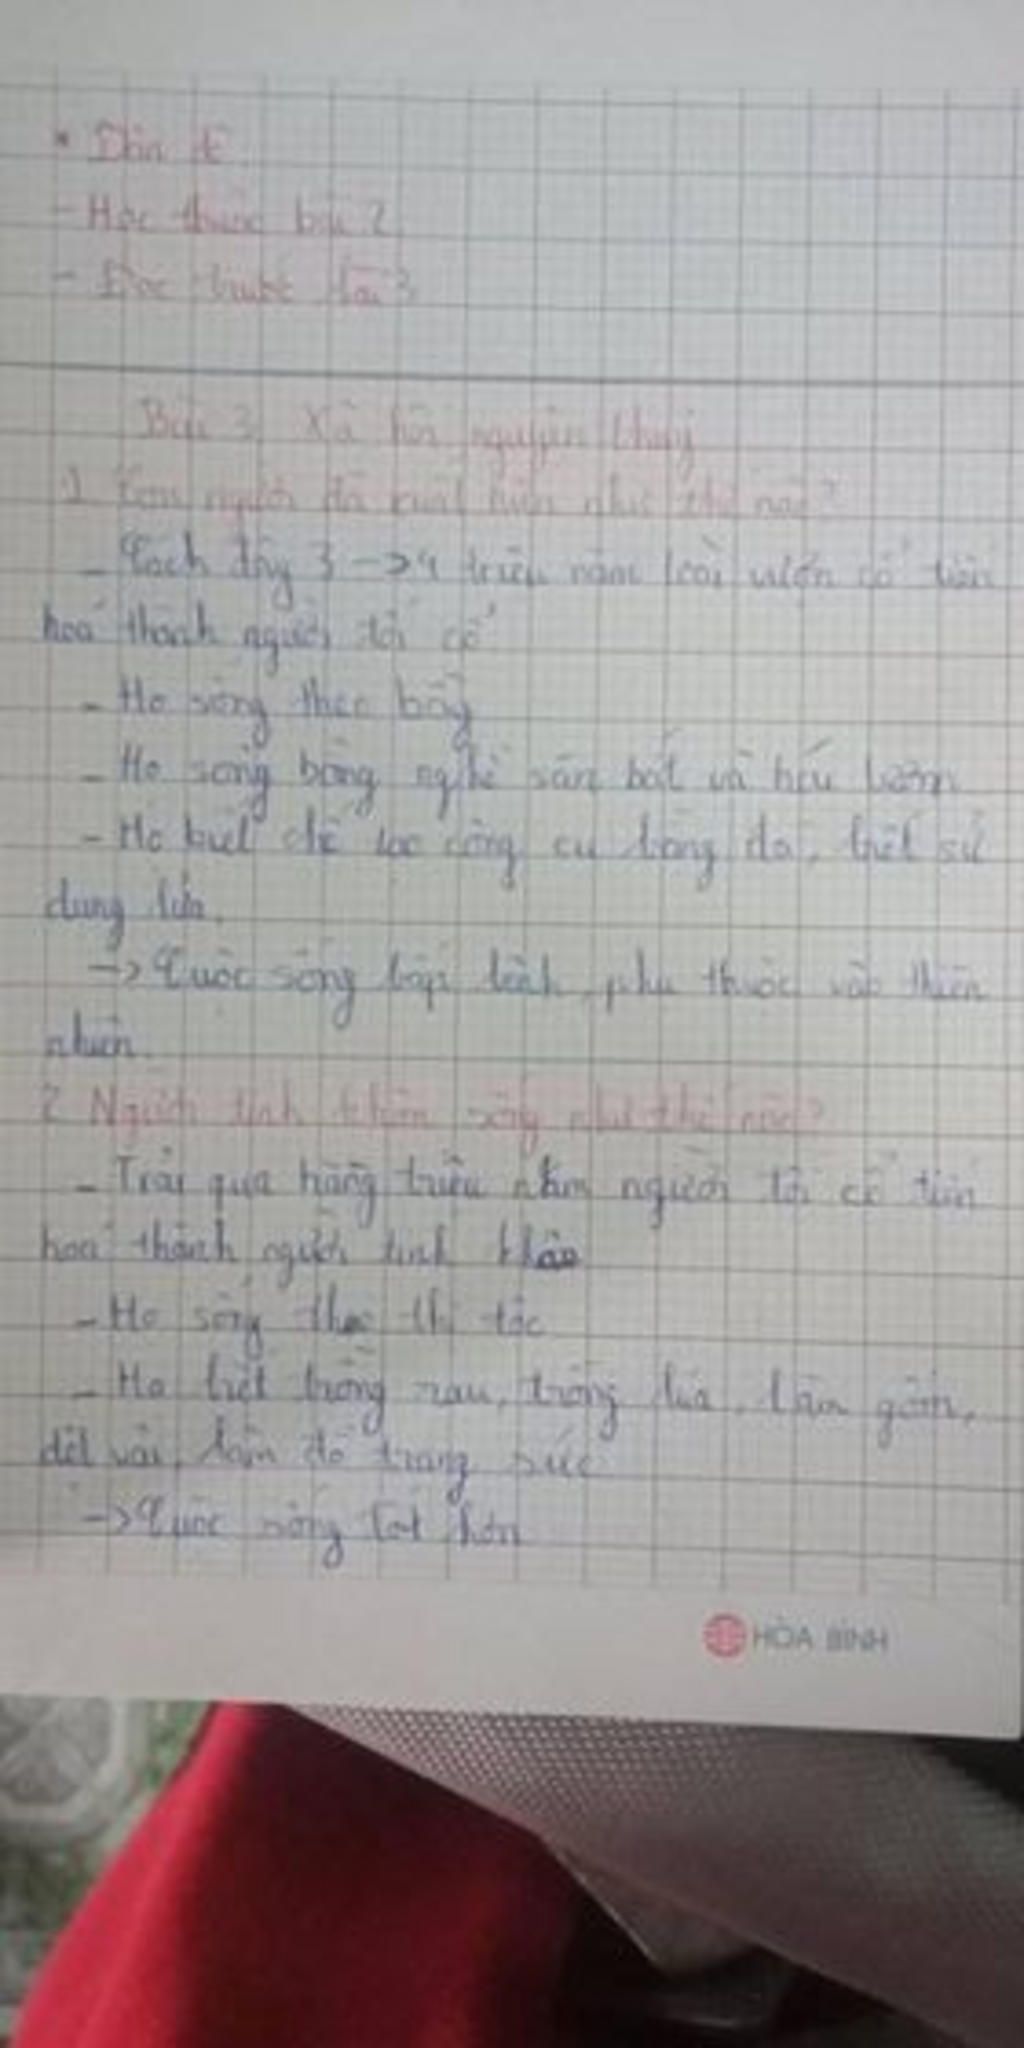 * Dặn dò
- Học thuộc bài 2
- Đọc trước bài 3
Bài 3 Xã hội nguyên thuỷ
1 Con người đã xuất hiện như thế nào?
- Cách đây 3 -> 4 triệu năm loài vượn cổ tiến
hoá thành người tối cổ
- Họ sống theo bầy
- Họ sống bằng nghề săn bắt và hái lượm
- Họ biết chế tạc công cụ bằng đá, biết sử
dụng lửa.
-> Cuộc sống bấp bênh, phụ thuộc vào thiên
nhiên.
2 Người tinh khôn sống như thế nào?
- Trải qua hàng triệu năm người tối cổ tiến
hoá thành người tinh
- Họ sống theo thị tộc
- Họ biết trồng rau, trồng lúa, làm gốm,
dệt vải, làm đồ trang sức
-> Cuộc sống tốt hơn
HÒA BÌNH